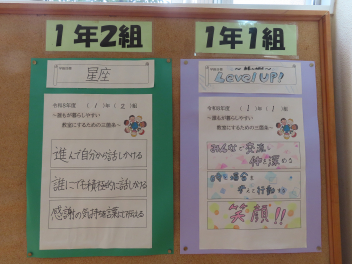 1年2組
星座
令和6年度 (1)年(2)組
~誰もが暮らしやすい
教室にするための三箇条~
進んで自分から話しかける
誰にでも積極的に話しかける
感謝の気持ちを言葉で伝える
1年1組
Level UP!
令和6年度 (1)年(1)組
~誰もが暮らしやすい
教室にするための三箇条~
みんなと交流し
仲を深める
時と場合を
考えて行動する
笑顔!!